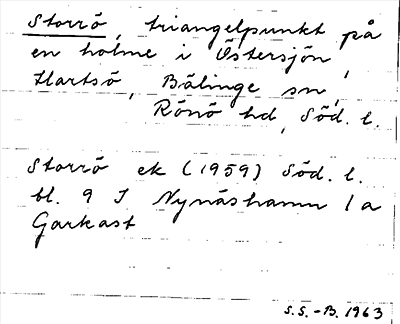 Storrö, triangelpunkt på
en holme i Östersjön,
Hartsö, Bälinge sn,
Rönö hd, Söd. l.
Storrö ek (1959) Söd. l.
bl. 9 I Nynäshamn 1a
Garkast
S.S.-B. 1963